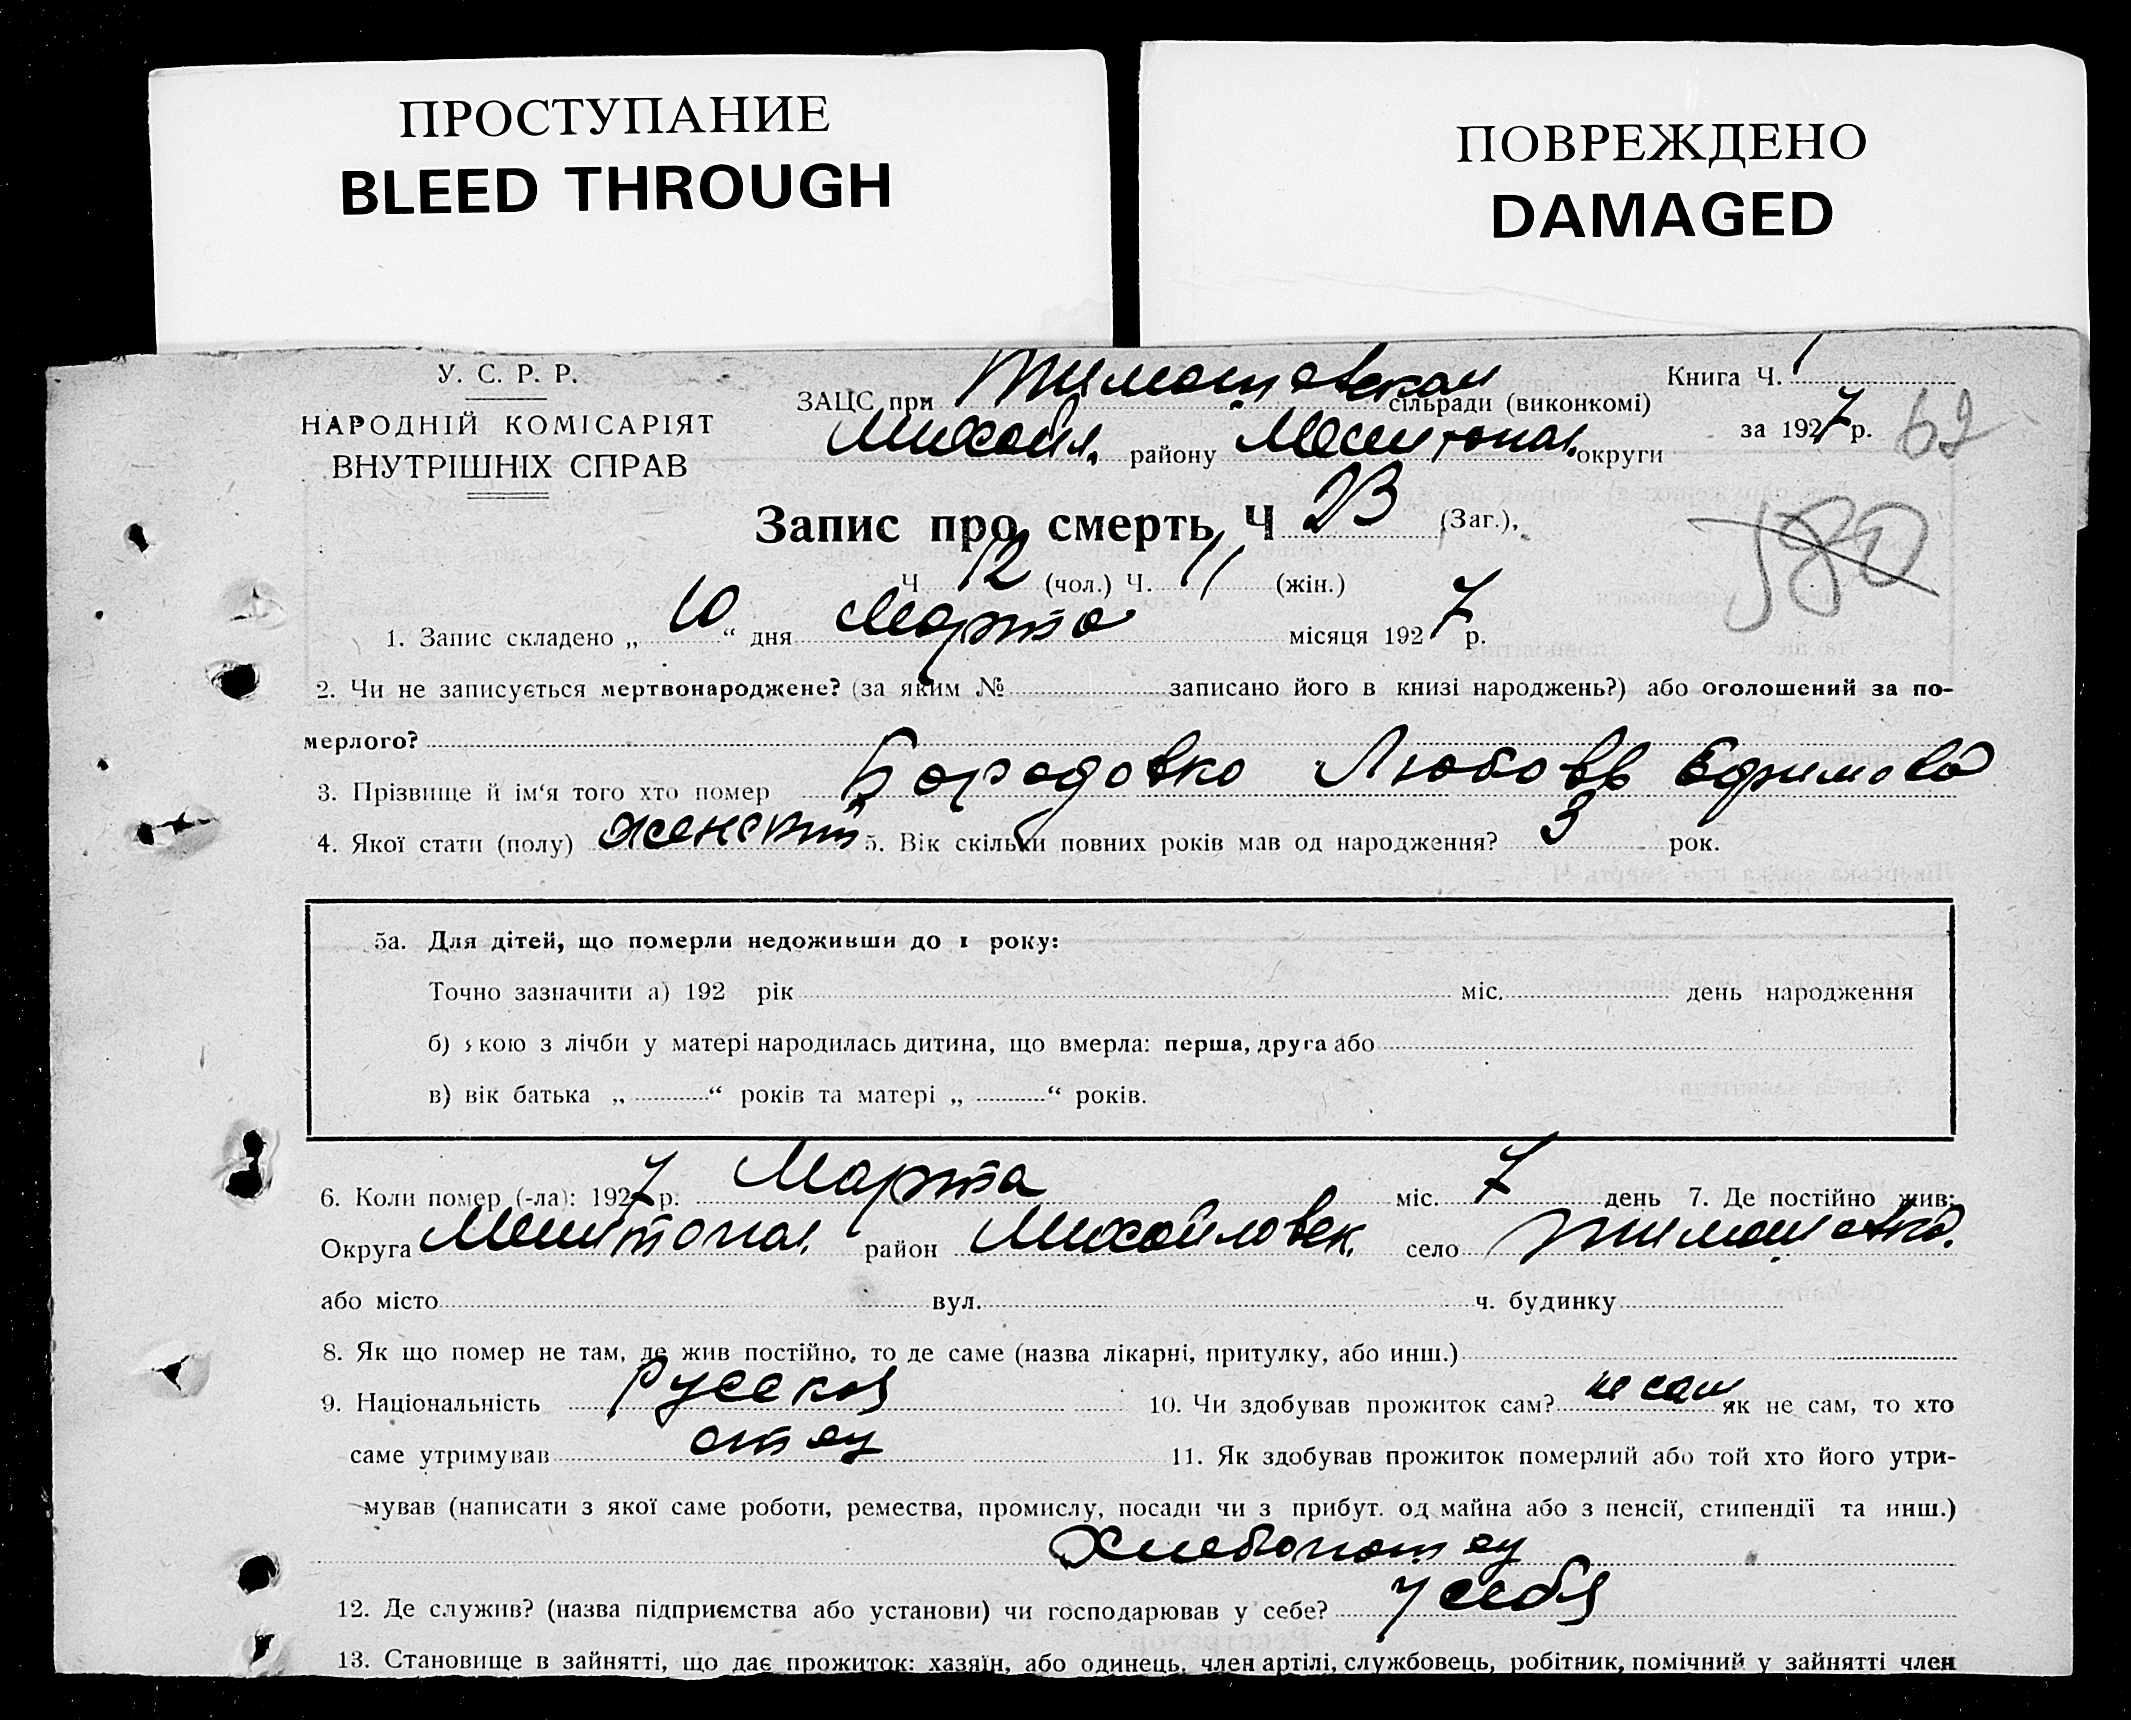 ПРОСТУПАНИЕ
BLEED THROUGH
ПОВРЕЖДЕНО
DAMAGED
У. С. Р. Р.
НАРОДНІЙ КОМІСАРІЯТ
ВНУТРІШНІХ СПРАВ
Книга Ч. 1
за 1927 р. 62
ЗАЦС при Тимошовском сільради (виконкомі)
Михайл. району Мелитопол. округи
Запис про смерть Ч 23 (Заг.),
580
Ч 12 (чол.) Ч. 11 (жін.)
1. Запис складено „ 10 “ дня Марта місяця 1927 р.
2. Чи не записується мертвонароджене? (за яким № записано його в книзі народжень?) або оголошений за по-
мерлого?
3. Прізвище й ім'я того хто помер Бородовко Любовь Ефимова
4. Якої стати (полу) женский 5. Вік скільки повних років мав од народження? 3 рок.
5а. Для дітей, що померли недоживши до 1 року:
Точно зазначити а) 192 рік міс. день народження
б) якою з лічби у матері народилась дитина, що вмерла: перша, друга або
в) вік батька „ “ років та матері „ “ років.
6. Коли помер (-ла): 1927 р. Марта міс. 7 день 7. Де постійно жив:
Округа Мелитопол. район Михайловск. село Тимошовка.
або місто вул. ч. будинку
8. Як що помер не там, де жив постійно, то де саме (назва лікарні, притулку, або инш.)
9. Національність Русская 10. Чи здобував прожиток сам? не сам як не сам, то хто
саме утримував отец 11. Як здобував прожиток померлий або той хто його утри-
мував (написати з якої саме роботи, ремества, промислу, посади чи з прибут. од майна або з пенсії, стипендії та инш.)
Хлебопашец
12. Де служив? (назва підприємства або установи) чи господарював у себе? у себя
13. Становище в зайнятті, що дає прожиток: хазяїн, або одинець, член артілі, службовець, робітник, помічний у зайнятті член